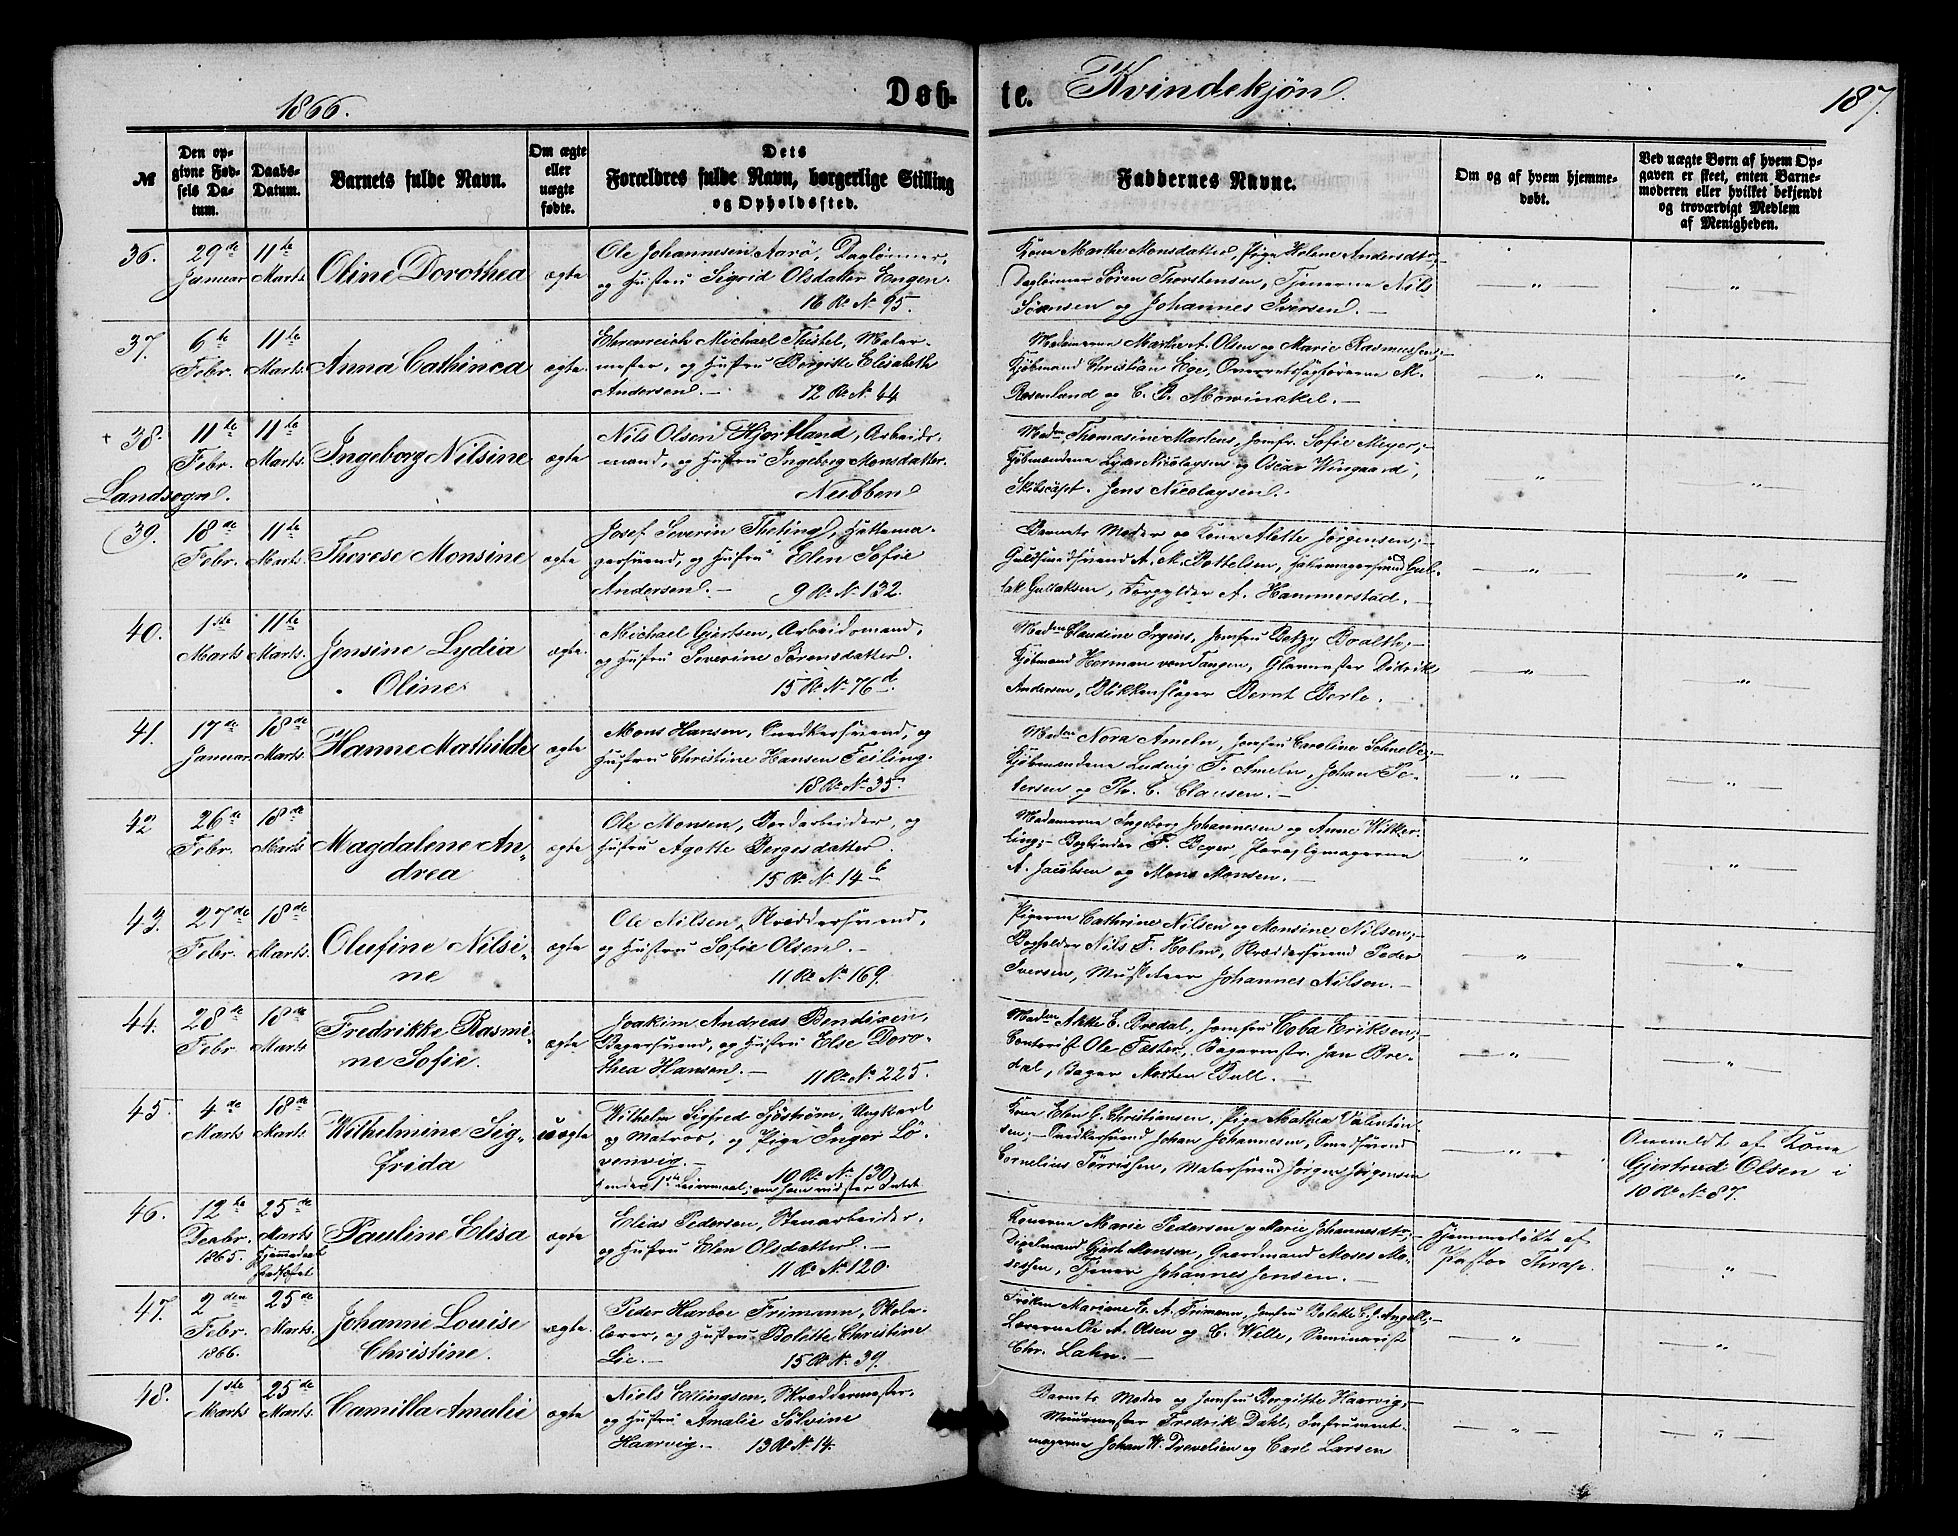 1866.
Døb-
te.
Kvindekjøn.
187.
№
Den op-
givne Fød-
sels Da-
tum.
Daabs-
Datum.
Barnets fulde Navn.
Om ægte
eller
uægte
fødte.
Dets
Forældres fulde Navn, borgerlige Stilling
og Opholdssted.
Faddernes Navne.
Om og af hvem hjemme-
døbt.
Ved uægte Børn af hvem Op-
gaven er skeet, enten Barne-
moderen eller hvilket bekjendt
og troværdigt Medlem
af Menigheden.
36.
29de
Januar
11te
Marts
Oline Dorothea
ægte
Ole Johannesen Aarø, Daglønner,
og Hustru Sigrid Olsdatter Engen.
16 R. N. 95.
Kone Marthe Monsdatter, Pige Helene Andersdtr;
Daglønner Søren Thorstensen, Tjenerne Nils
Sørensen og Johannes Iversen.
37.
6te
Febr.
11te
Marts
Anna Cathinca
ægte.
Ehrenreich Michael Tistel, Maler-
mester, og Hustru Borgitte Elisabeth
Andersen.
12 R. N. 44.
Madamerne Marthe A. Olsen og Marie Rasmussen;
Kjøbmand Christian Ege, Overretssagførerne M.
Rosenlund og C. P. Mowinckel.
+ 38.
11te
Febr.
11te
Marts.
Ingeborg Nilsine
ægte
Nils Olsen Hjortland, Arbeids-
mand, og Hustru Ingeborg Monsdatter.
Nubben
Landsogn.
Madm Thomasine Martens, Jomfr. Sofie Meyer;
Kjøbmændene Lyder Nicolaysen og Oscar Wingaard,
Skibscapt. Jens Nicolaysen.
39.
18de
Febr.
11te
Marts.
Therese Monsine
ægte
Josef Severin Theting, Hattema-
gersvend, og Hustru Elen Sofie
Andersen.
9 R. N. 132.
Barnets Moder og Kone Alette Jørgensen;
Guldsmedsvend A. M. Bottelsen,
lak Gullaksen, Forgylder A. Hammerstad.
40.
1ste
Marts
11te
Marts.
Jensine Lydia
Oline
ægte.
Michael Gjertsen, Arbeidsmand,
og Hustru Severine Sørensdatter.
15 R. N. 76 d.
Madm Claudine Irgens, Jomfru Betzy Boalth;
Kjøbmand Herman von Tangen, Glarmester Didrik
Andersen, Blikkenslager Bernt Berle.
41.
17de
Januar
18de
Marts.
Hanne Mathilde
ægte
Mons Hansen, Snedkersvend, og
Hustru Christine Hansen Feiling.
18 R. N. 35.
Madm Nora Ameln, Jomfru Caroline Schnelle;
Kjøbmændene Ludvig F. Ameln, Johan Pe-
tersen og Th. C. Clausen.
42
26de
Febr.
18de
Marts
Magdalene An-
drea
ægte
Ole Monsen, Bordarbeider, og
Hustru Agathe Børgesdatter.
15 R. N. 14 b
Madamerne Ingeborg Johannesen og Anne Wilker-
ling; Bogbinder F. Beyer, Paraplymagerne
A. Jacobsen og Mons Monsen.
43.
27de
Febr.
18de
Marts.
Olufine Nilsi-
ne
ægte
Ole Nilsen, Skreddersvend,
og Hustru Sofie Olsen.
11 R. N. 169.
Pigerne Cathrine Nilsen og Monsine Nilsen;
Bogholder Nils F. Holm, Skræddersvend Peder
Iversen, Musketeer Johannes Nilsen.
44.
28de
Febr
18de
Marts.
Fredrikke Rasmi-
ne Sofie.
ægte
Joakim Andreas Bendixen,
Bagersvend, og Hustru Else Doro-
thea Hansen.
11 R. N. 225.
Madm Alette C. Bredal, Jomfru Coba Eriksen;
Contorist Ole Fester, Bagermstr. Jan Bre-
dal, Bager Morten Bull.
45.
4de
Marts
18de
Marts.
Wilhelmine Sig-
frida
uægte
Wilhelm Sigfred Sjøstrøm, Ungkarl
og Matros, og Pige Inger Lø-
venvig.
10 R. N. 130,
Kone Elen G. Christiansen, Pige Mathea Valentin-
sen; Snedkersvend Johan Johannesen, Smedsvend
Cornelius Tørrissen, Malersvend Jørgen Jørgensen
Anmeldt af Kone
Gjertrud Olsen i
10 R. N. 87.
46.
12te
Decbr.
1865.
25de
Marts
Hjemmedaab
stadfæstet
Pauline Elisa
ægte
Elias Pedersen, Stenarbeider,
og Hustru Elen Olsdatter.
11 R. N. 120.
Konerne Marie Pedersen og Marie Johannesdtr;
Digelmand Gjert Monsen, Gaardmand Moses Mo-
sessen, Tjener Johannes Jensen.
Hjemmedøbt af
Pastor Thrap.
47.
2den
Febr.
1866.
25de
Marts.
Johanne Louise
Christine.
ægte.
Peder Harboe Frimann, Skole-
lærer, og Hustru Bolette Christine
Lie.
15 R. N. 39.
Frøken Mariane E. A. Frimann, Jomfru Bolette C. J. Angell;
Lærerne Ole A. Olsen og C. Welle, Seminarist
Chr. Lahn.
48.
1ste
Marts
25de
Marts.
Camilla Amalie
ægte
Niels Ellingsen, Skreddermester,
og Hustru Amalie Sølvine
Haarvig.
13 R. N. 14.
Barnets Moder og Jomfru Bergitte Haarvig;
Muurmester Fredrik Dahl, Instrument-
magerne Johan W. Trevelien og Carl Larsen